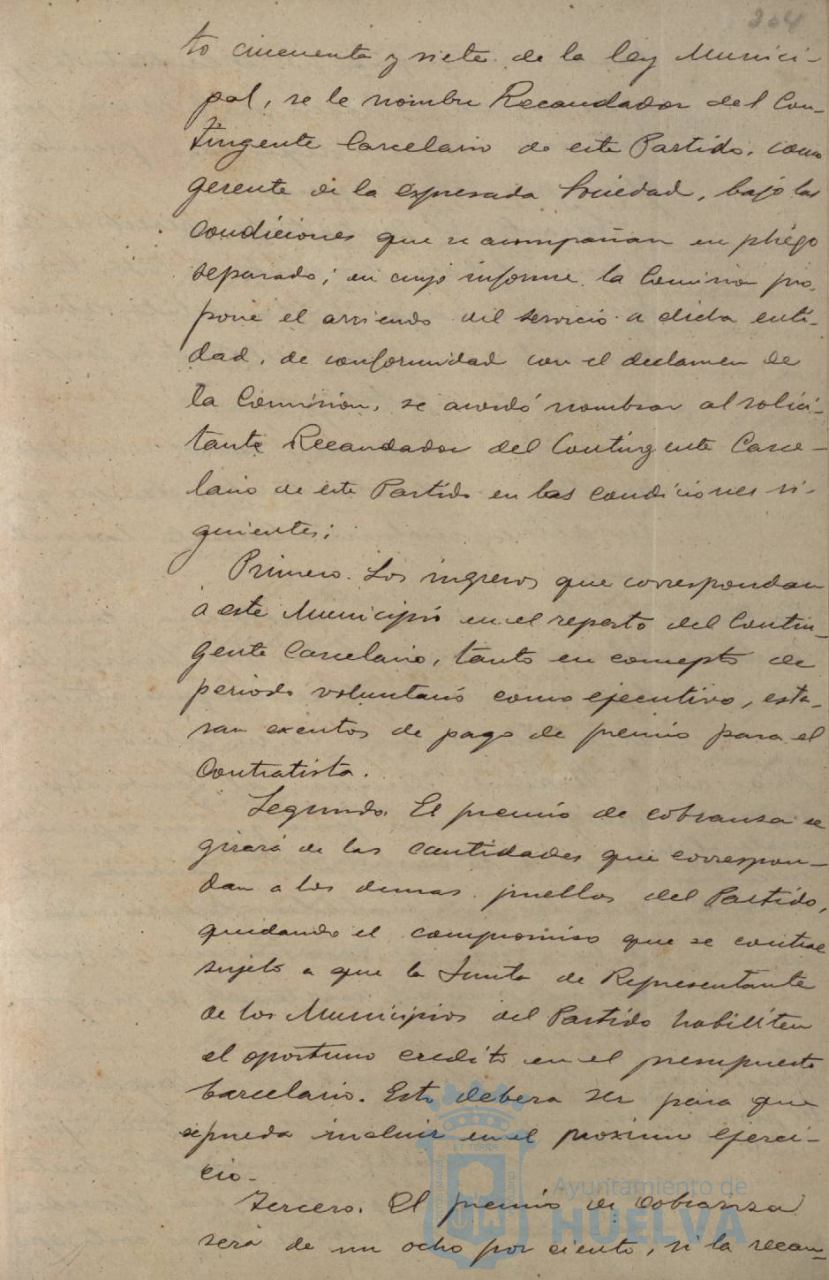 304
to cincuenta y siete de la ley Munici-
pal, se le nombre Recaudador del Con-
tingente Carcelario de este Partido, como
gerente de la expresada Sociedad, bajo las
condiciones que se acompañan en pliego
separado; en cuyo informe la Comision pro-
pone el arriendo del servicio a dicha enti-
dad, de conformidad con el dictamen de
la Comision, se acordó nombrar al solici-
tante Recaudador del Contingente Carce-
lario de este Partido en las condiciones si-
guientes;
Primero. Los ingresos que correspondan
a este Municipio en el reparto del Contin-
gente Carcelario, tanto en concepto de
periodo voluntario como ejecutivo, esta-
ran exentos de pago de premio para el
Contratista.
Segundo. El premio de cobranza se
girará de las cantidades que correspon-
dan a los demas pueblos del Partido,
quedando el compromiso que se contrae
sujeto a que la Junta de Representante
de los Municipios del Partido habiliten
el oportuno credito en el presupuesto
Carcelario. Esto debera ser para que
se pueda incluir en el proximo ejerci-
cio.
Tercero. El premio de cobranza
será de un ocho por ciento, si la recau-
Ayuntamiento de
HUELVA